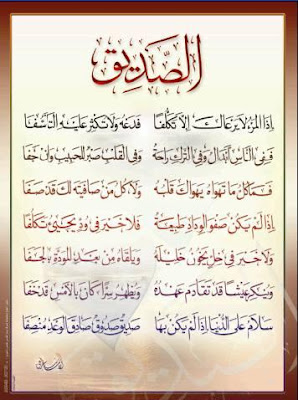 الصَّدِيق
إِذَا المَرْءُ لاَ يَرْعَاكَ إِلاَّ تَكَلُّفَا فَدَعْهُ وَلاَ تُكْثِرْ عَلَيْهِ التَّأَسُّفَا
فَفِي النَّاسِ أَبْدَالٌ وَفِي التَّرْكِ رَاحَةٌ وَفِي القَلْبِ صَبْرٌ لِلحَبِيبِ وَإِنْ جَفَا
فَمَا كُلُّ مَا تَهْوَاهُ يَهْوَاكَ قَلْبُهُ وَلاَ كُلُّ مَنْ صَافَيْتَهُ لَكَ قَدْ صَفَا
إِذَا لَمْ يَكُنْ صَفْوُ الوِدَادِ طَبِيعَةً فَلاَ خَيْرَ فِي وُدٍّ يَجِيءُ تَكَلُّفَا
وَلاَ خَيْرَ فِي خِلٍّ يَخُونُ خَلِيلَهُ وَيَلْقَاهُ مِنْ بَعْدِ المَوَدَّةِ بِالجَفَا
وَيُنْكِرُ عَيْشًا قَدْ تَقَادَمَ عَهْدُهُ وَيُظْهِرُ سِرًّا كَانَ بِالأَمْسِ قَدْ خَفَا
سَلاَمٌ عَلَى الدُّنْيَا إِذَا لَمْ يَكُنْ بِهَا صَدِيقٌ صَدُوقٌ صَادِقُ الوَعْدِ مُنْصِفَا